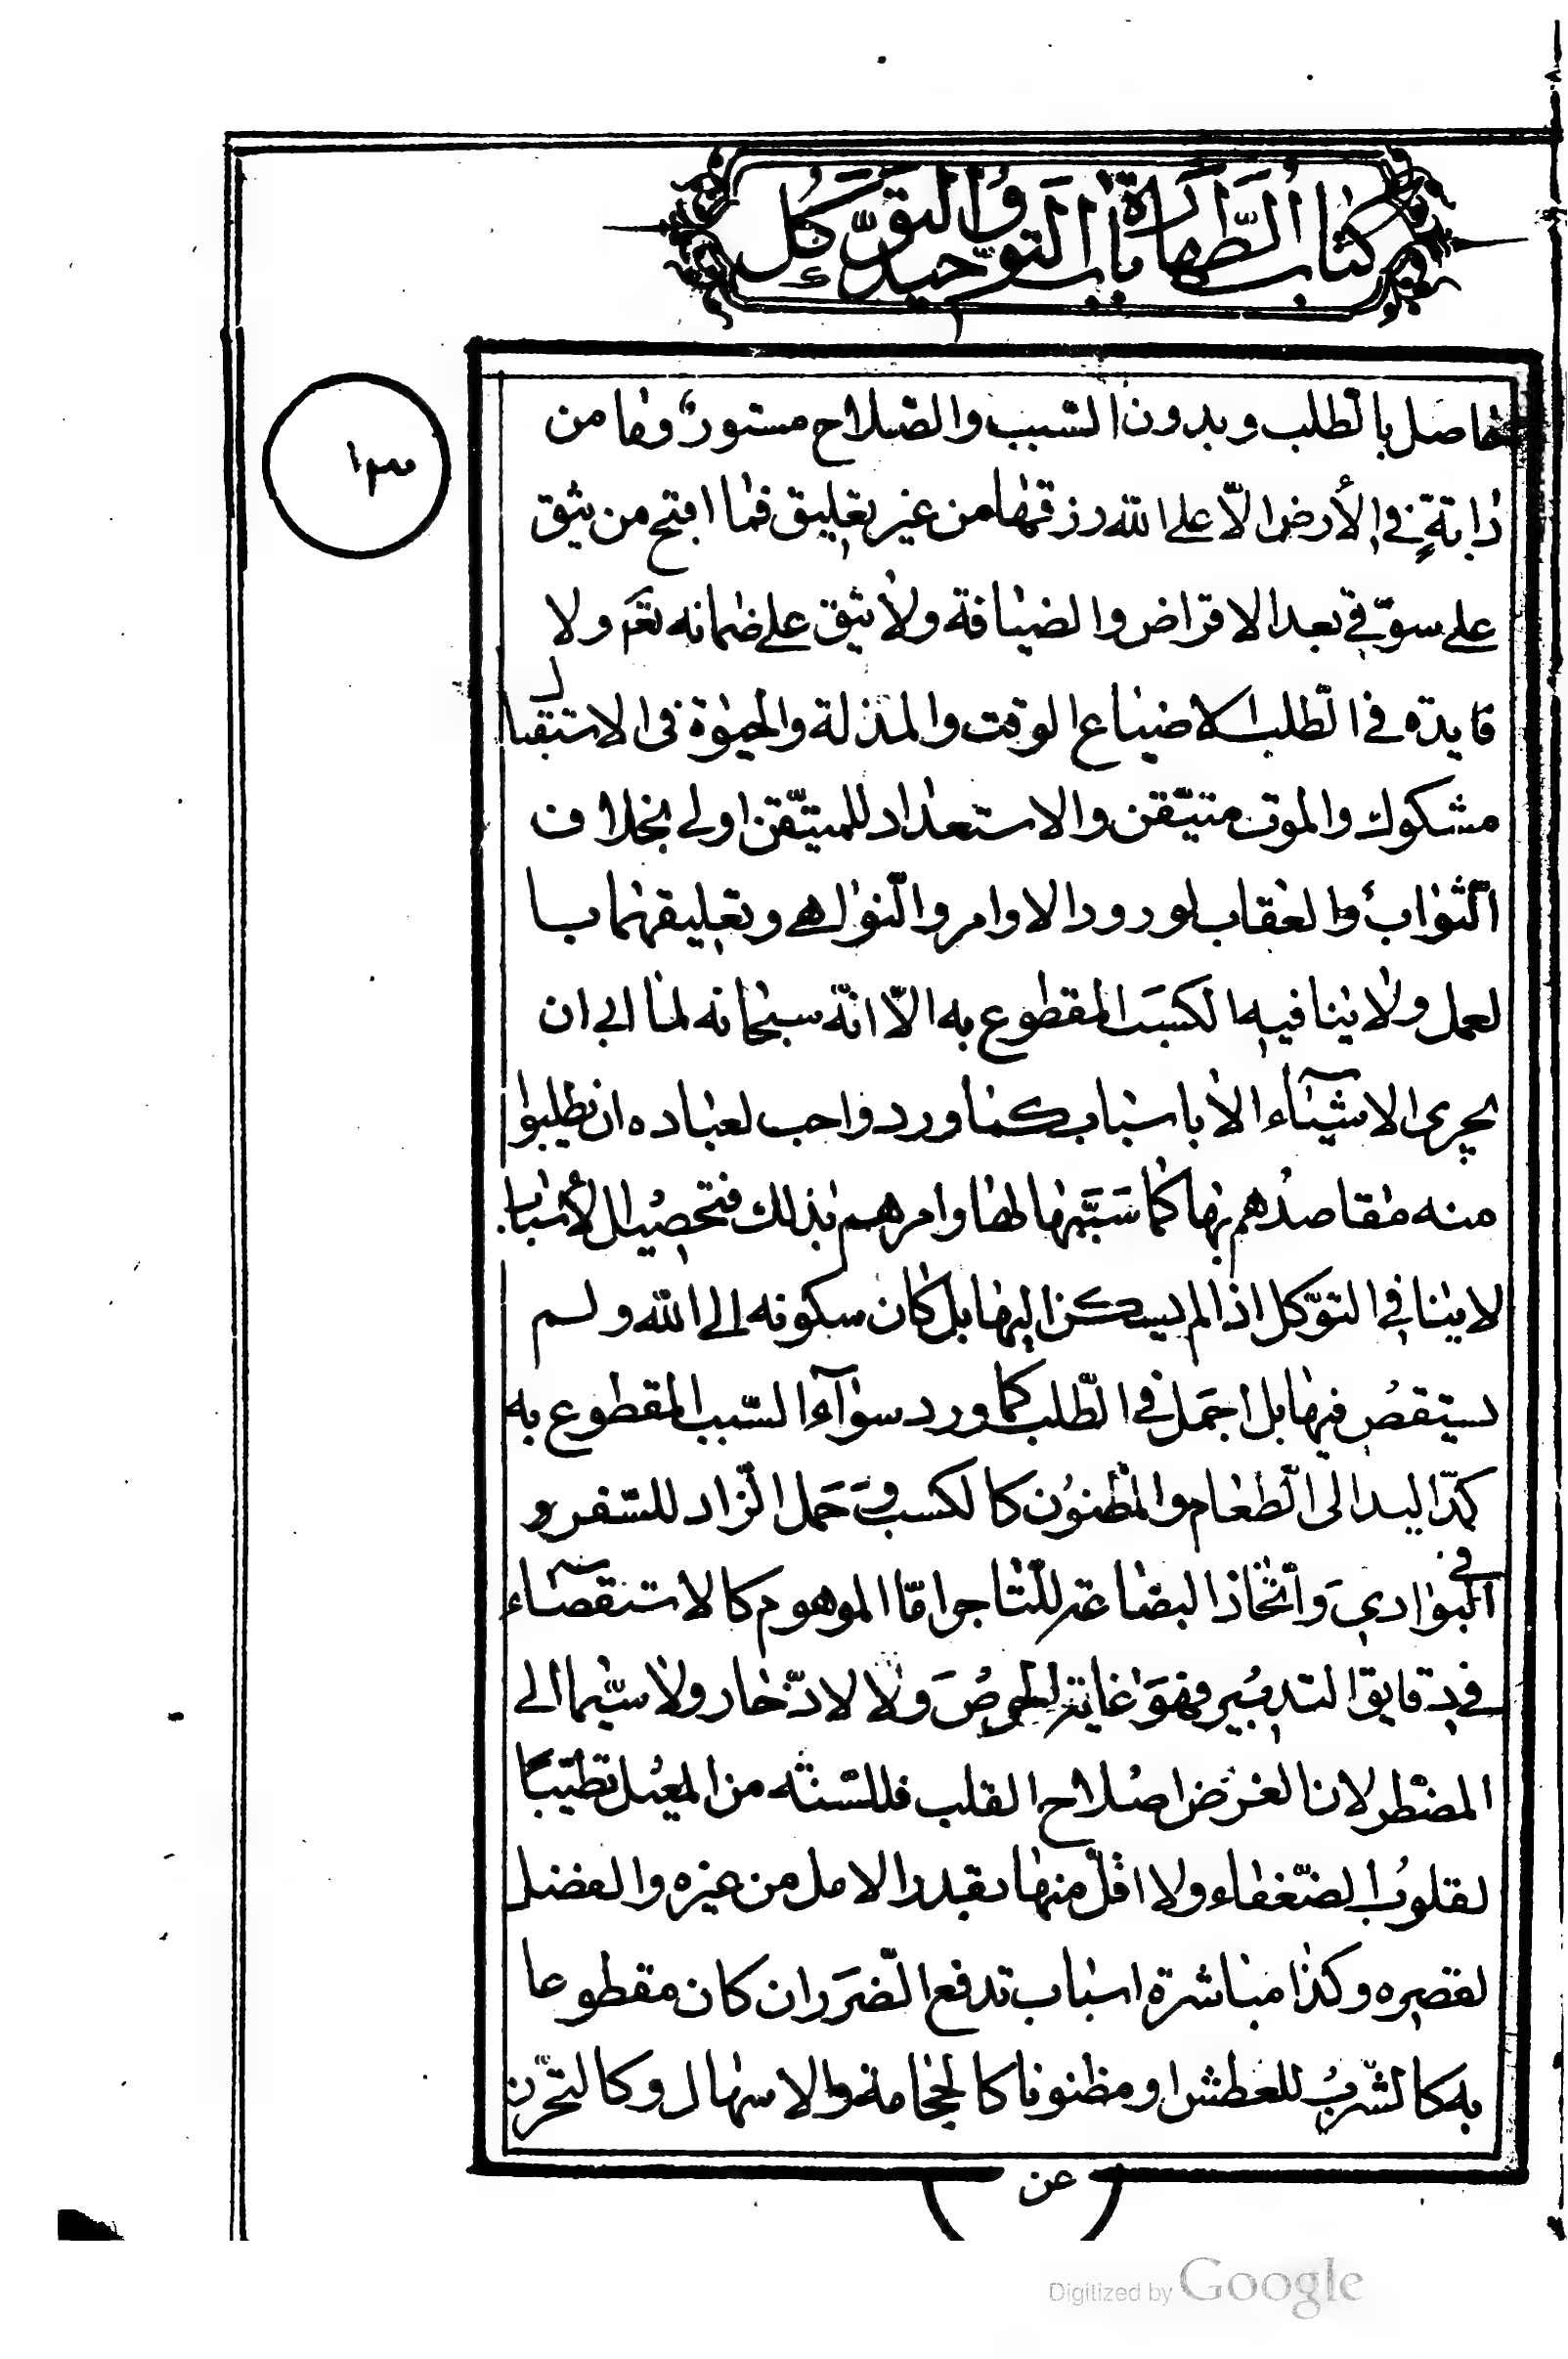 كتاب الطهارة باب التوحيد والتوكل
١٣٠
حاصل بالطلب وبدون السبب والصّلاح مستورٌ وما من
دابةٍ في الأرض الّا على الله رزقها من غير تعليق فما اقبح من يثق
على سوّقي بعد الاقراض والضيافة ولا يثق على ضمانه تعٰم ولا
فايدة في الطلب الا ضياع الوقت والمذلة والحيوة في الاستقبال
مشكوك والموت متيّقن والاستعداد للمتيّقن اولى بخلاف
الثّواب والعقاب لورود الاوامر والنّواهي وتعليقهما با
لعمل ولا ينافيه الكسب المقطوع به الّا انّه سبحانه لما ابى ان
يجرى الاشيآء الا باسباب كما ورد واحب لعباده ان يطلبوا
منه مقاصدهم بها كما سَبَّبها لها وامرهم بذلك فتحصيل الأسباب
لا ينافي التوّكل اذا لم يسكن اليها بل كان سكونه الى الله ولم
يستقص فيها بل اجمل في الطّلب كما ورد سوآء السّبب المقطوع به
كمدّ اليد الى الطّعام والمظنون كالكسب وَحَمل الزّاد للسّفر و
في البوادي وَاتّخاذ البضاعة للتّاجر امّا الموهوم كالاستقصآء
في دقايق التدبير فهوَ غاية الحرص وَلا لادّخار ولا سيّما الى
المضطر لان الغرض اصلاح القلب فللسّنة من المعيل تطييبًا
لقلوب الضّعفاء ولا اقلّ منها بقدر الامل من غيره والفضل
لقصره وكذا مباشرة اسباب تدفع الضّرَر ان كان مقطوعا
به كالشّرب للعطش او مظنونا كالحجامة والاسهال وكالتحرّز
عن
Digitized by Google